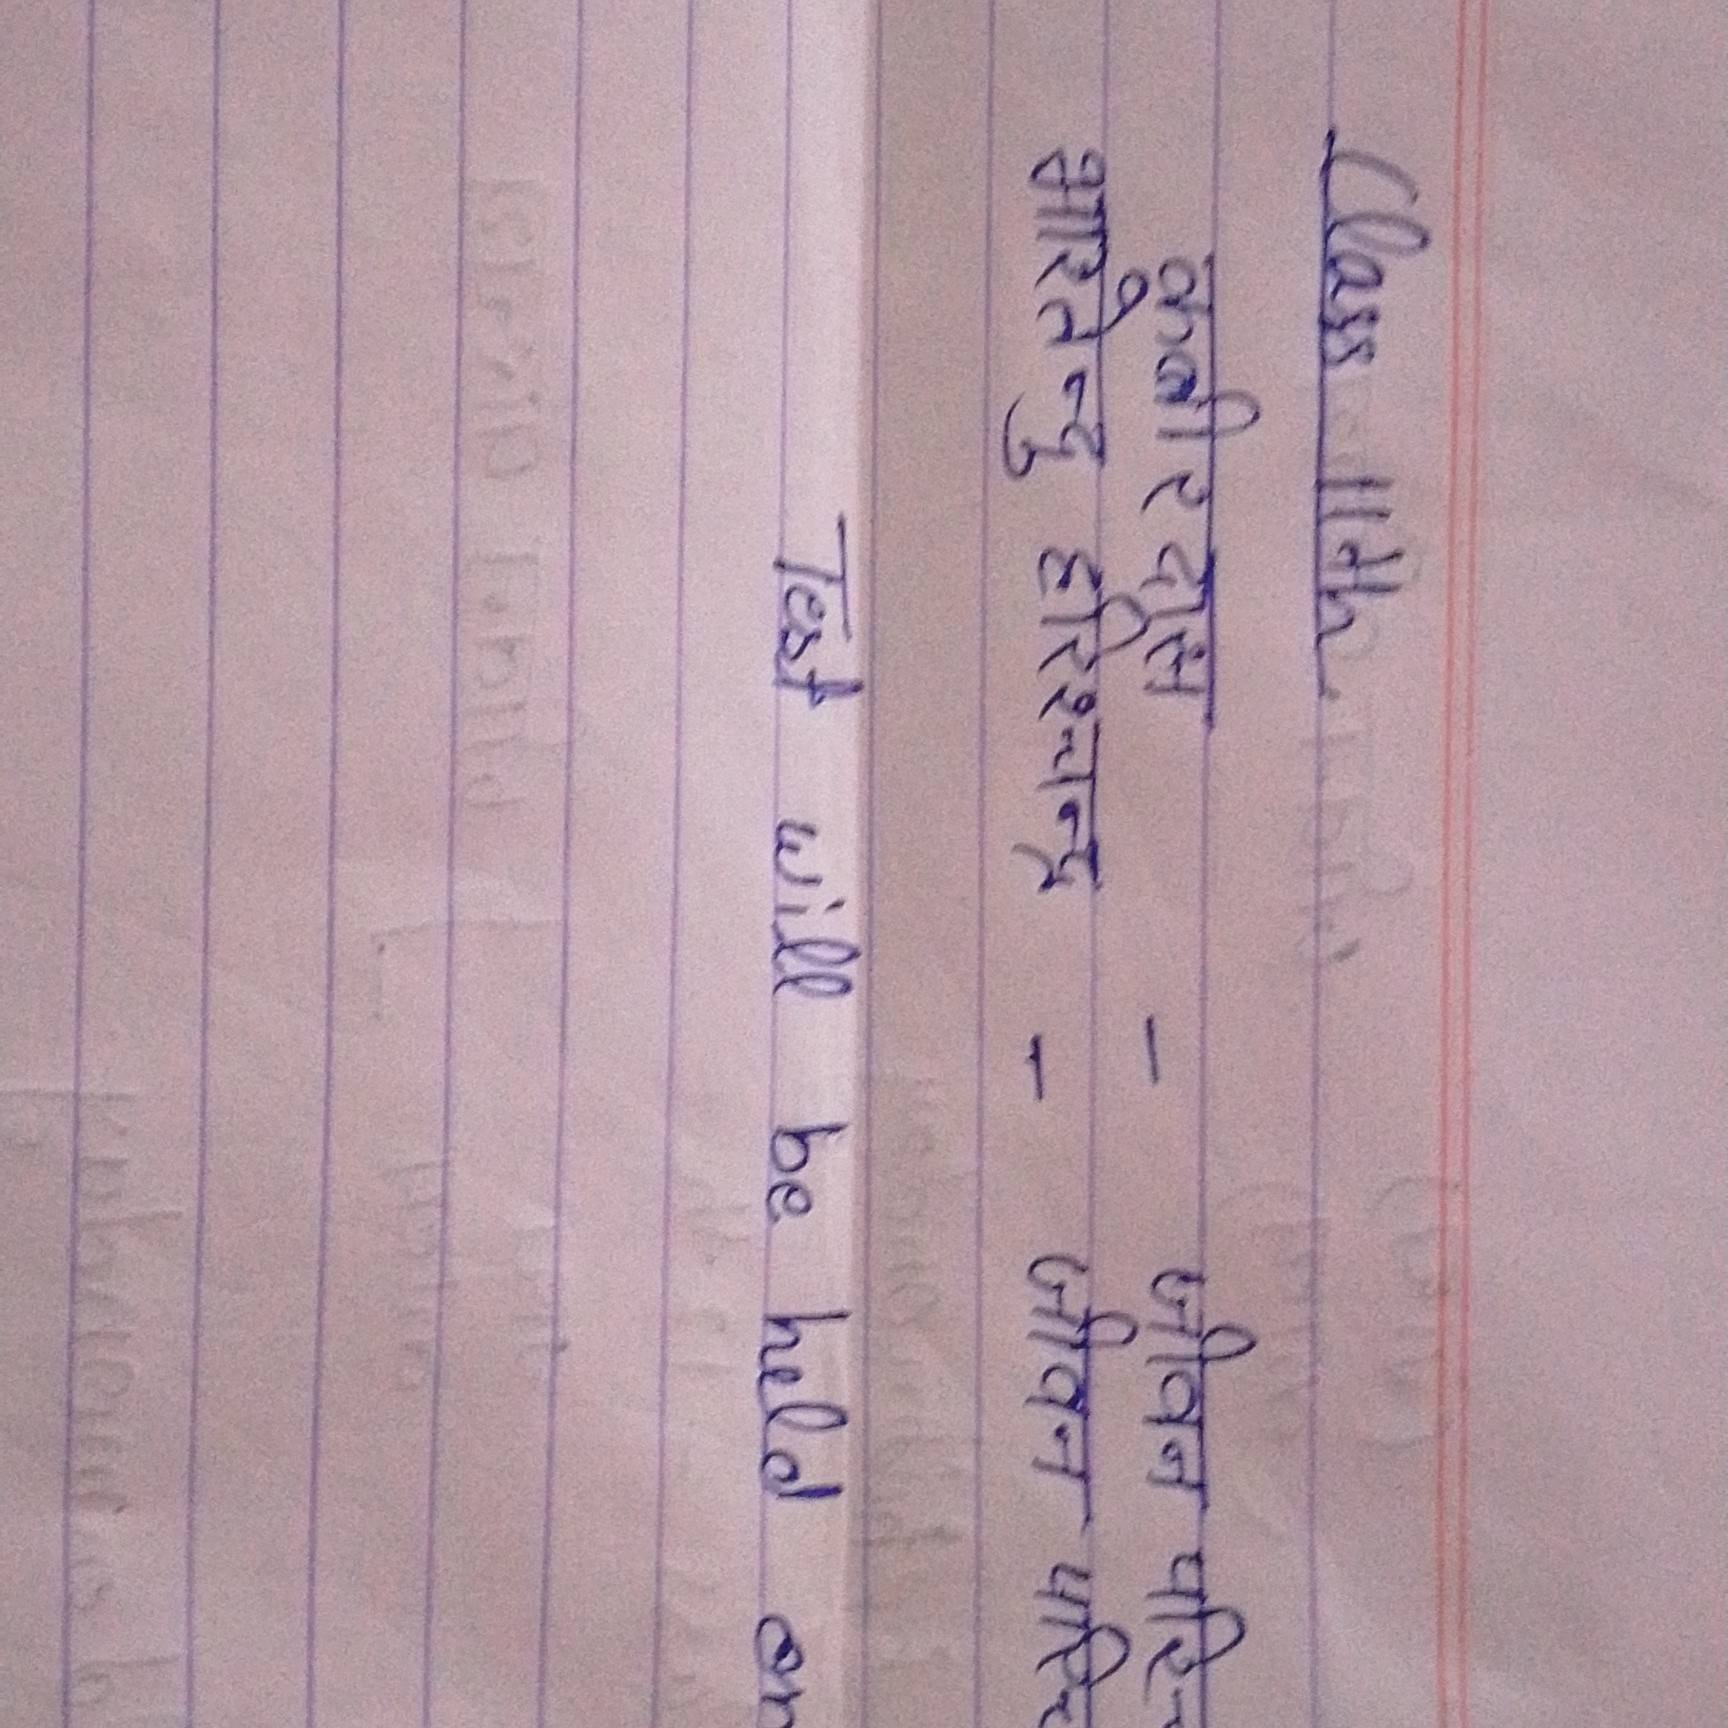 Class 11th
कबीर दास - जीवन परि
भारतेन्दु हरिश्चन्द्र - जीवन परि
Test will be held on